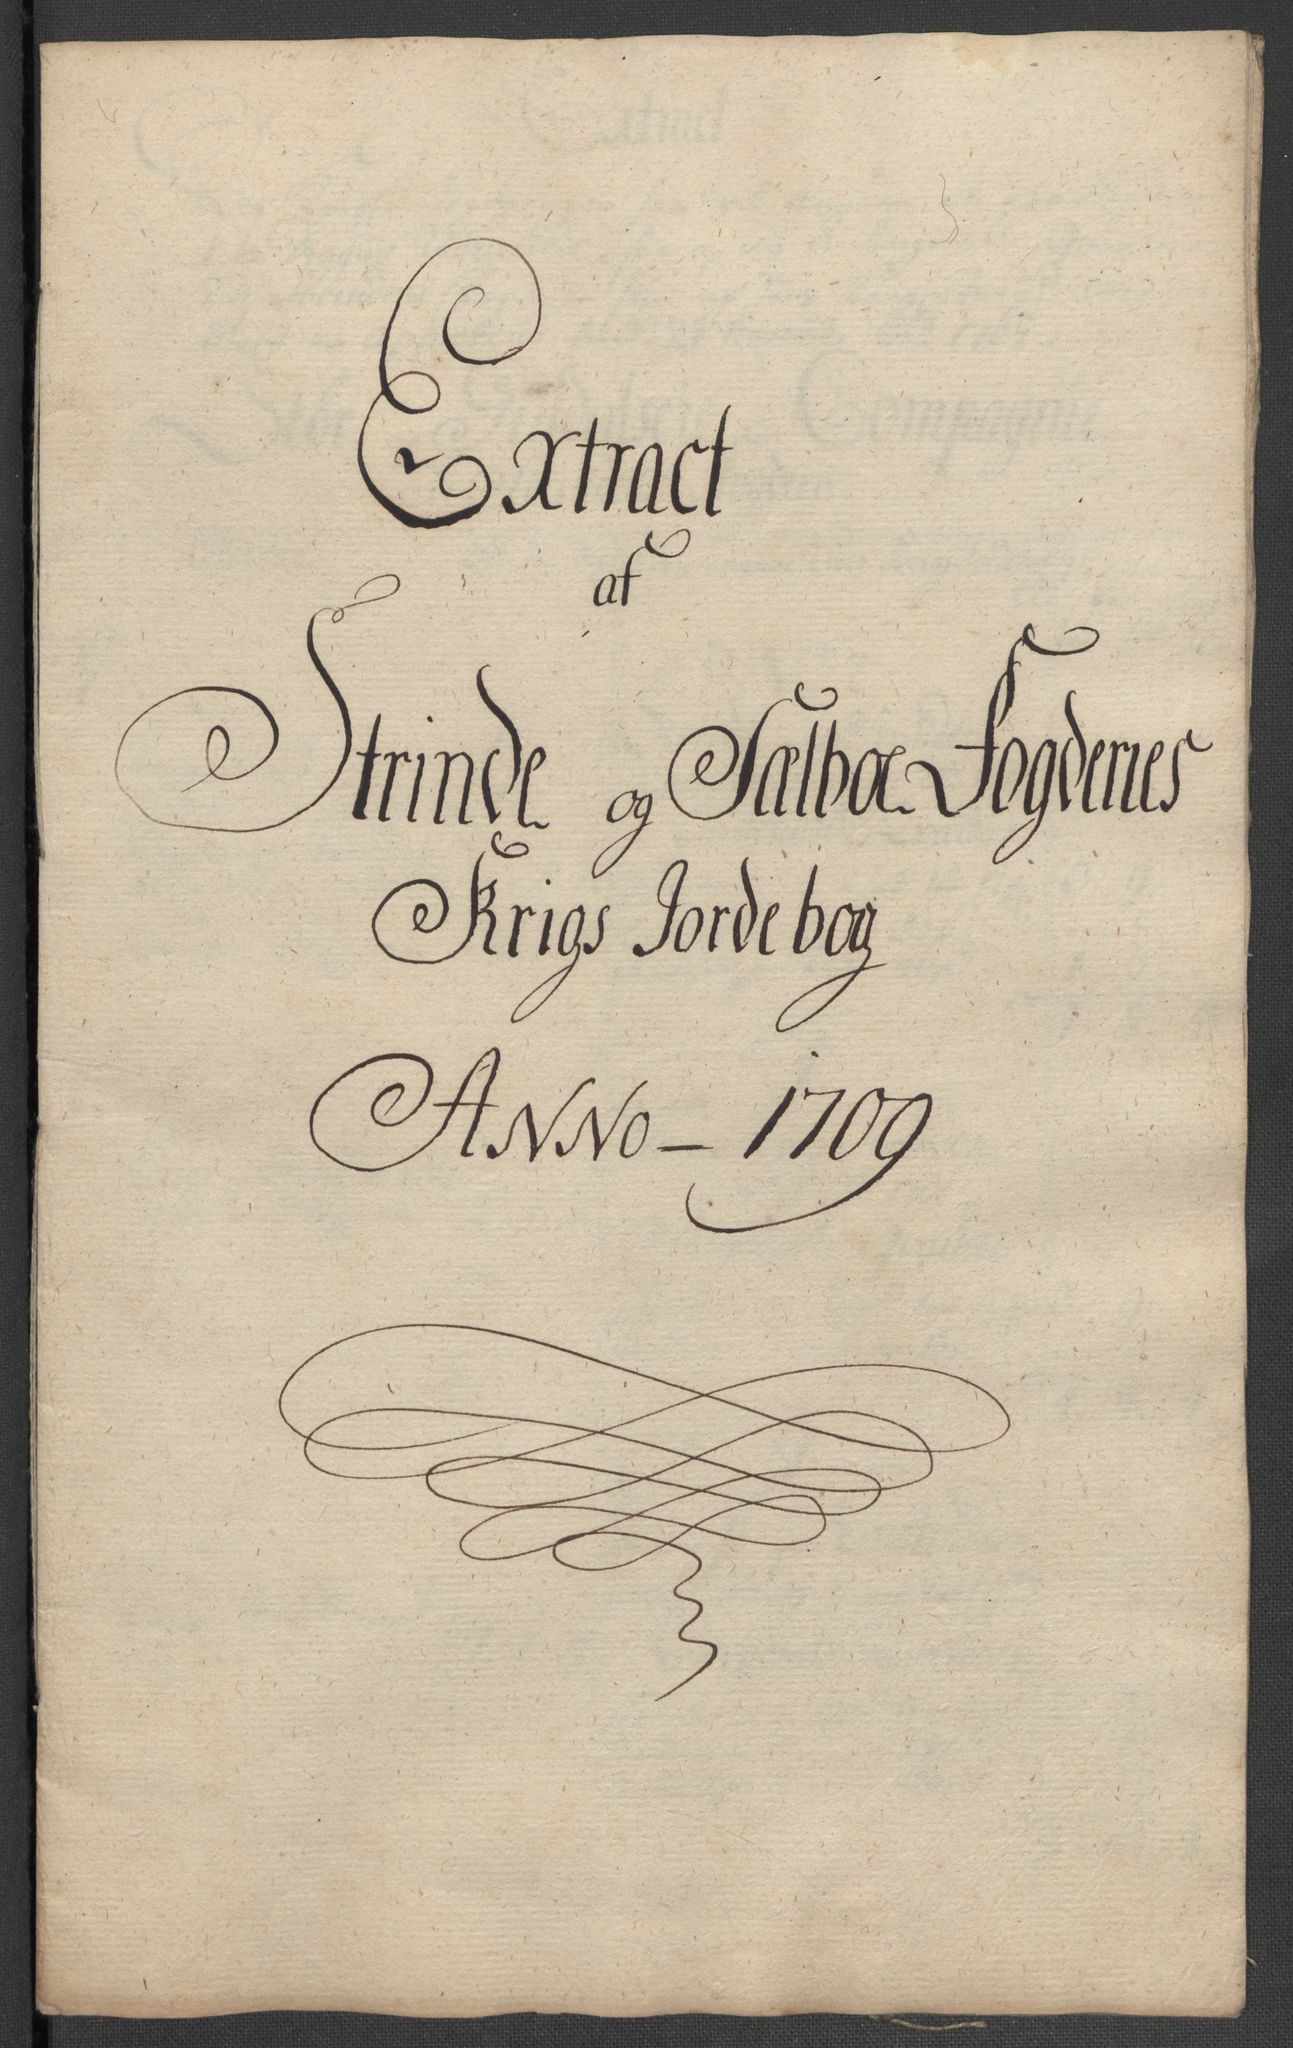 Extract
af
Strinde og Sælboe Fogderies
Krigs Jordebog
ANNo - 1709